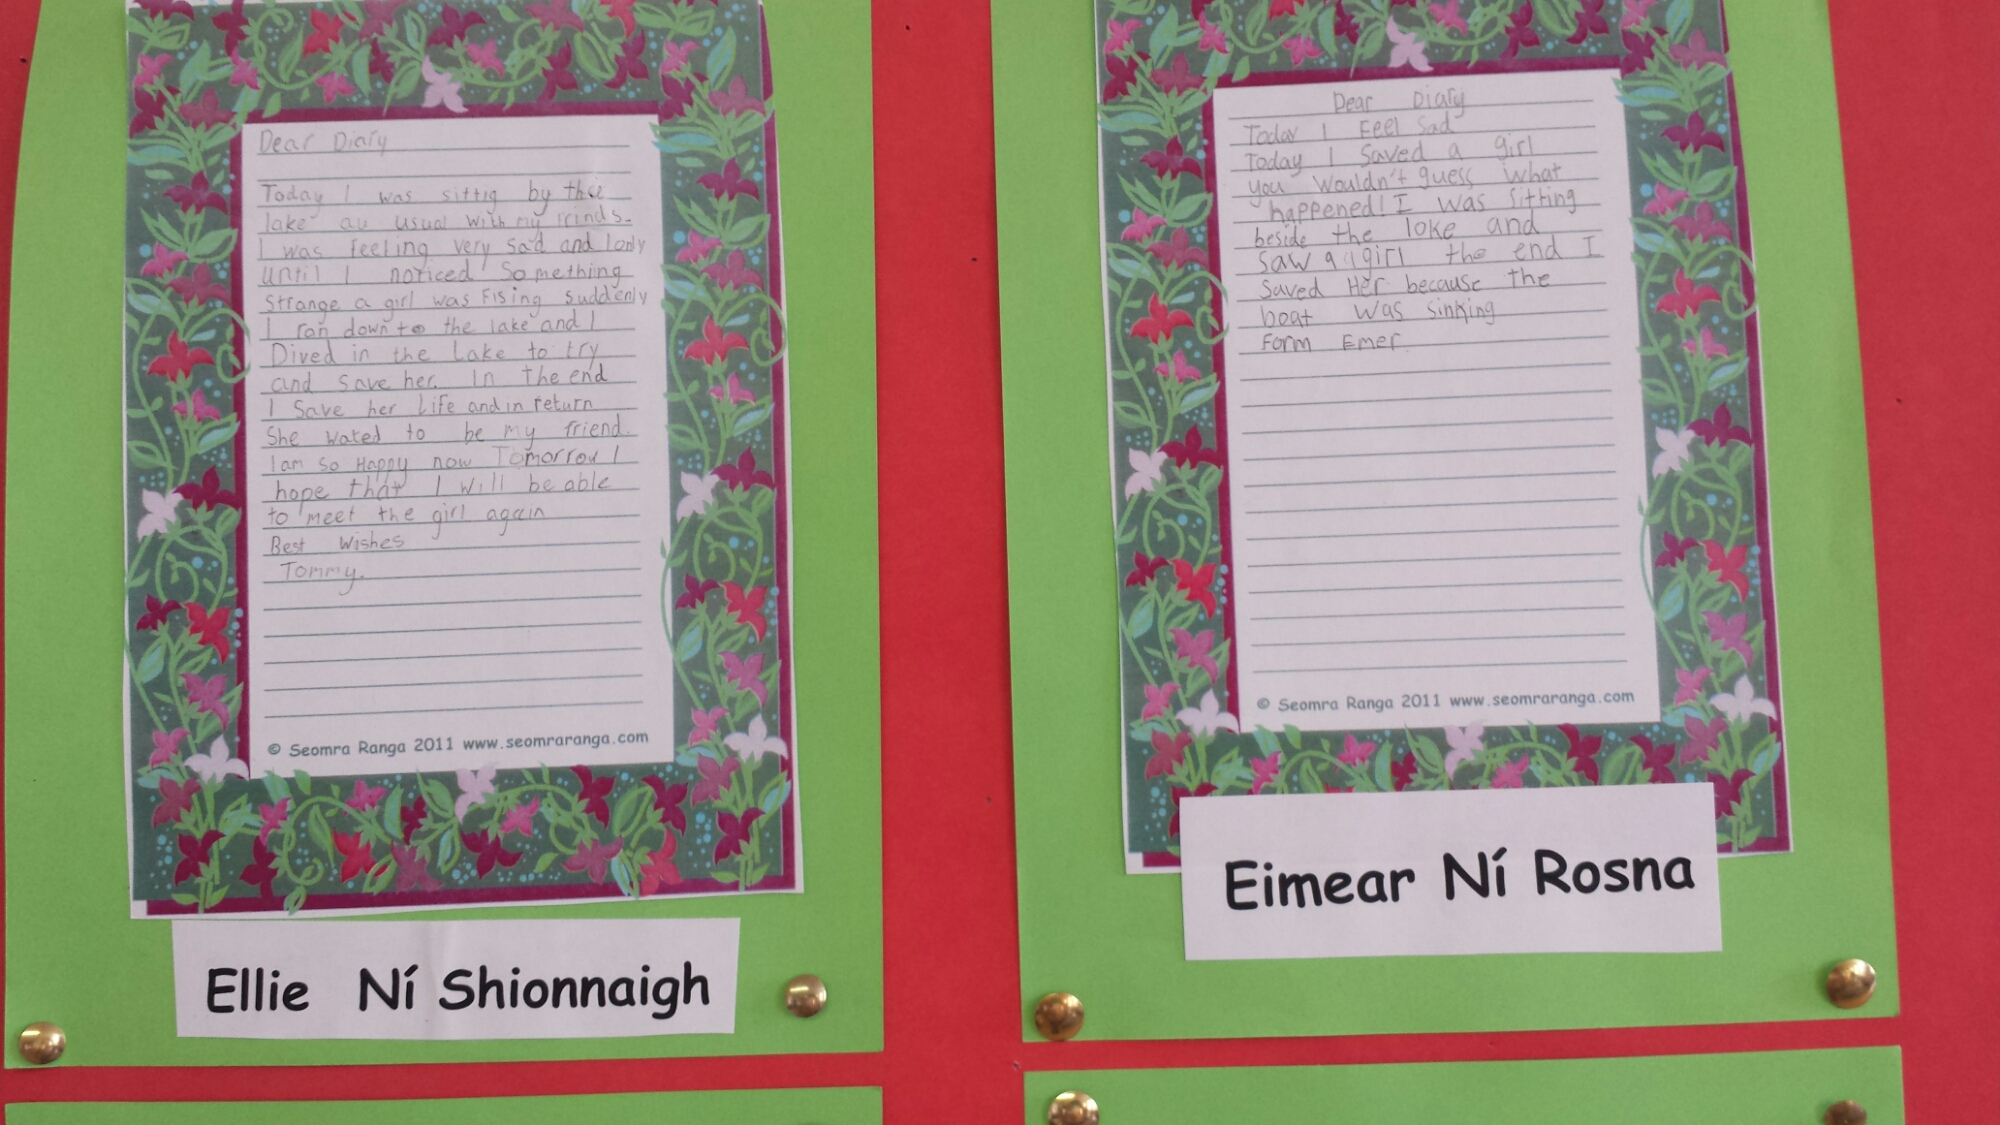 Dear Diary
Today I was sittig by the
lake au usual with my frinds.
I was feeling very sad and lonly
until I noticed something
Strange a girl was Fising suddenly
I ran down to the lake and I
Dived in the Lake to try
and save her. In the end
I Save her Life and in return
She wated to be my friend.
I am so Happy now Tomorrow I
hope that I will be able
to meet the girl again
Best Wishes
Tommy.
© Seomra Ranga 2011 www.seomraranga.com
Ellie Ní Shionnaigh
Dear Diary
Today I Feel Sad
Today I Saved a girl
you wouldn't guess what
happened! I was sitting
beside the lake and
Saw a girl the end I
Saved Her because the
boat was sinking
Form Emer
© Seomra Ranga 2011 www.seomraranga.com
Eimear Ní Rosna